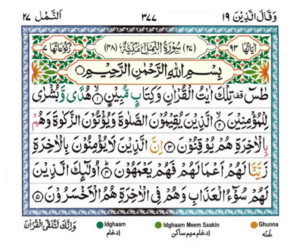 النَّمْل ٢٧ ٣٧٧ وَقَالَ الَّذِيْنَ ١٩
اٰيَاتُهَا ٩٣ (٢٧) سُوْرَةُ النَّمْلِ مَكِّيَّةٌ (٤٨) رُكُوْعَاتُهَا ٧
بِسْمِ اللّٰهِ الرَّحْمٰنِ الرَّحِيْمِ
طٰسٓ تِلْكَ اٰيٰتُ الْقُرْاٰنِ وَكِتَابٍ مُّبِيْنٍ ۙ۝۱ هُدًى وَّبُشْرٰى
لِلْمُؤْمِنِيْنَ ۙ۝۲ الَّذِيْنَ يُقِيْمُوْنَ الصَّلٰوةَ وَيُؤْتُوْنَ الزَّكٰوةَ وَهُمْ
بِالْاٰخِرَةِ هُمْ يُوْقِنُوْنَ ۝۳ اِنَّ الَّذِيْنَ لَا يُؤْمِنُوْنَ بِالْاٰخِرَةِ
زَيَّنَّا لَهُمْ اَعْمَالَهُمْ فَهُمْ يَعْمَهُوْنَ ۝۴ اُولٰٓئِكَ الَّذِيْنَ
لَهُمْ سُوْٓءُ الْعَذَابِ وَهُمْ فِى الْاٰخِرَةِ هُمُ الْاَخْسَرُوْنَ ۝۵
وَاِنَّكَ لَتُلَقَّى الْقُرْاٰنَ
Idghaam Idghaam Meem Saakin Ghunna
ادغام ادغام میم ساکن غنہ